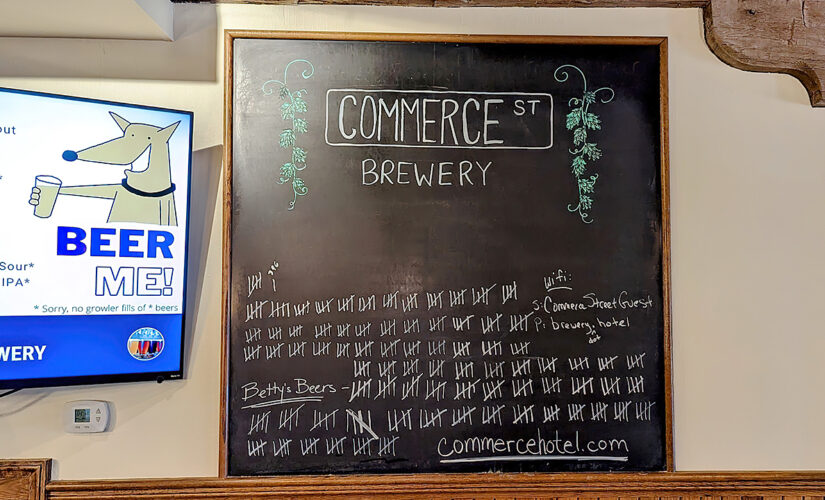 out
*
BEER
ME!
Sour*
IPA*
* Sorry, no growler fills of * beers
WERY
COMMERCE ST
BREWERY
Wifi:
S: Commerce Street Guest
P: brewery.hotel
dot
Betty's Beers -
commercehotel.com